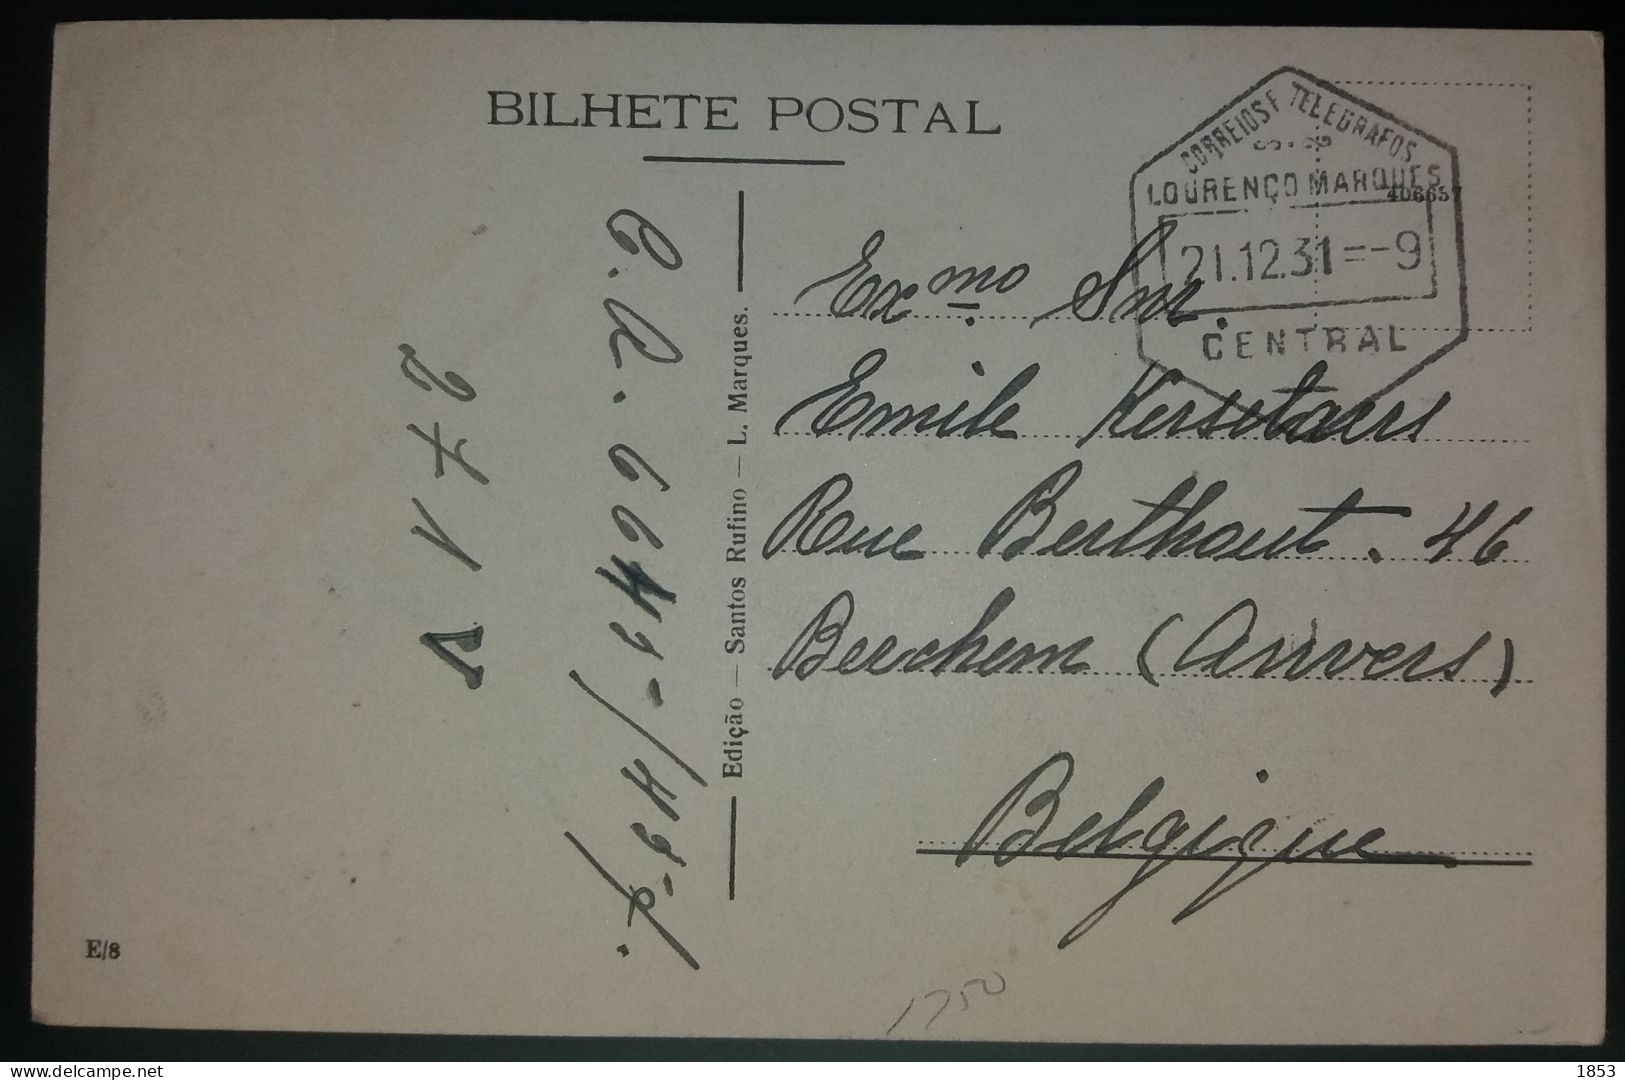 BILHETE POSTAL
CORREIOS E TELEGRAFOS
LOURENÇO MARQUES
406657
21.12.31=-9
CENTRAL
Exmo Snr.
Emile Kersetaers
Rue Berthout. 46
Berchem (Anvers)
Belgique
Edição — Santos Rufino — L. Marques.
C. R.
E/8
1750
www.delcampe.net
1853